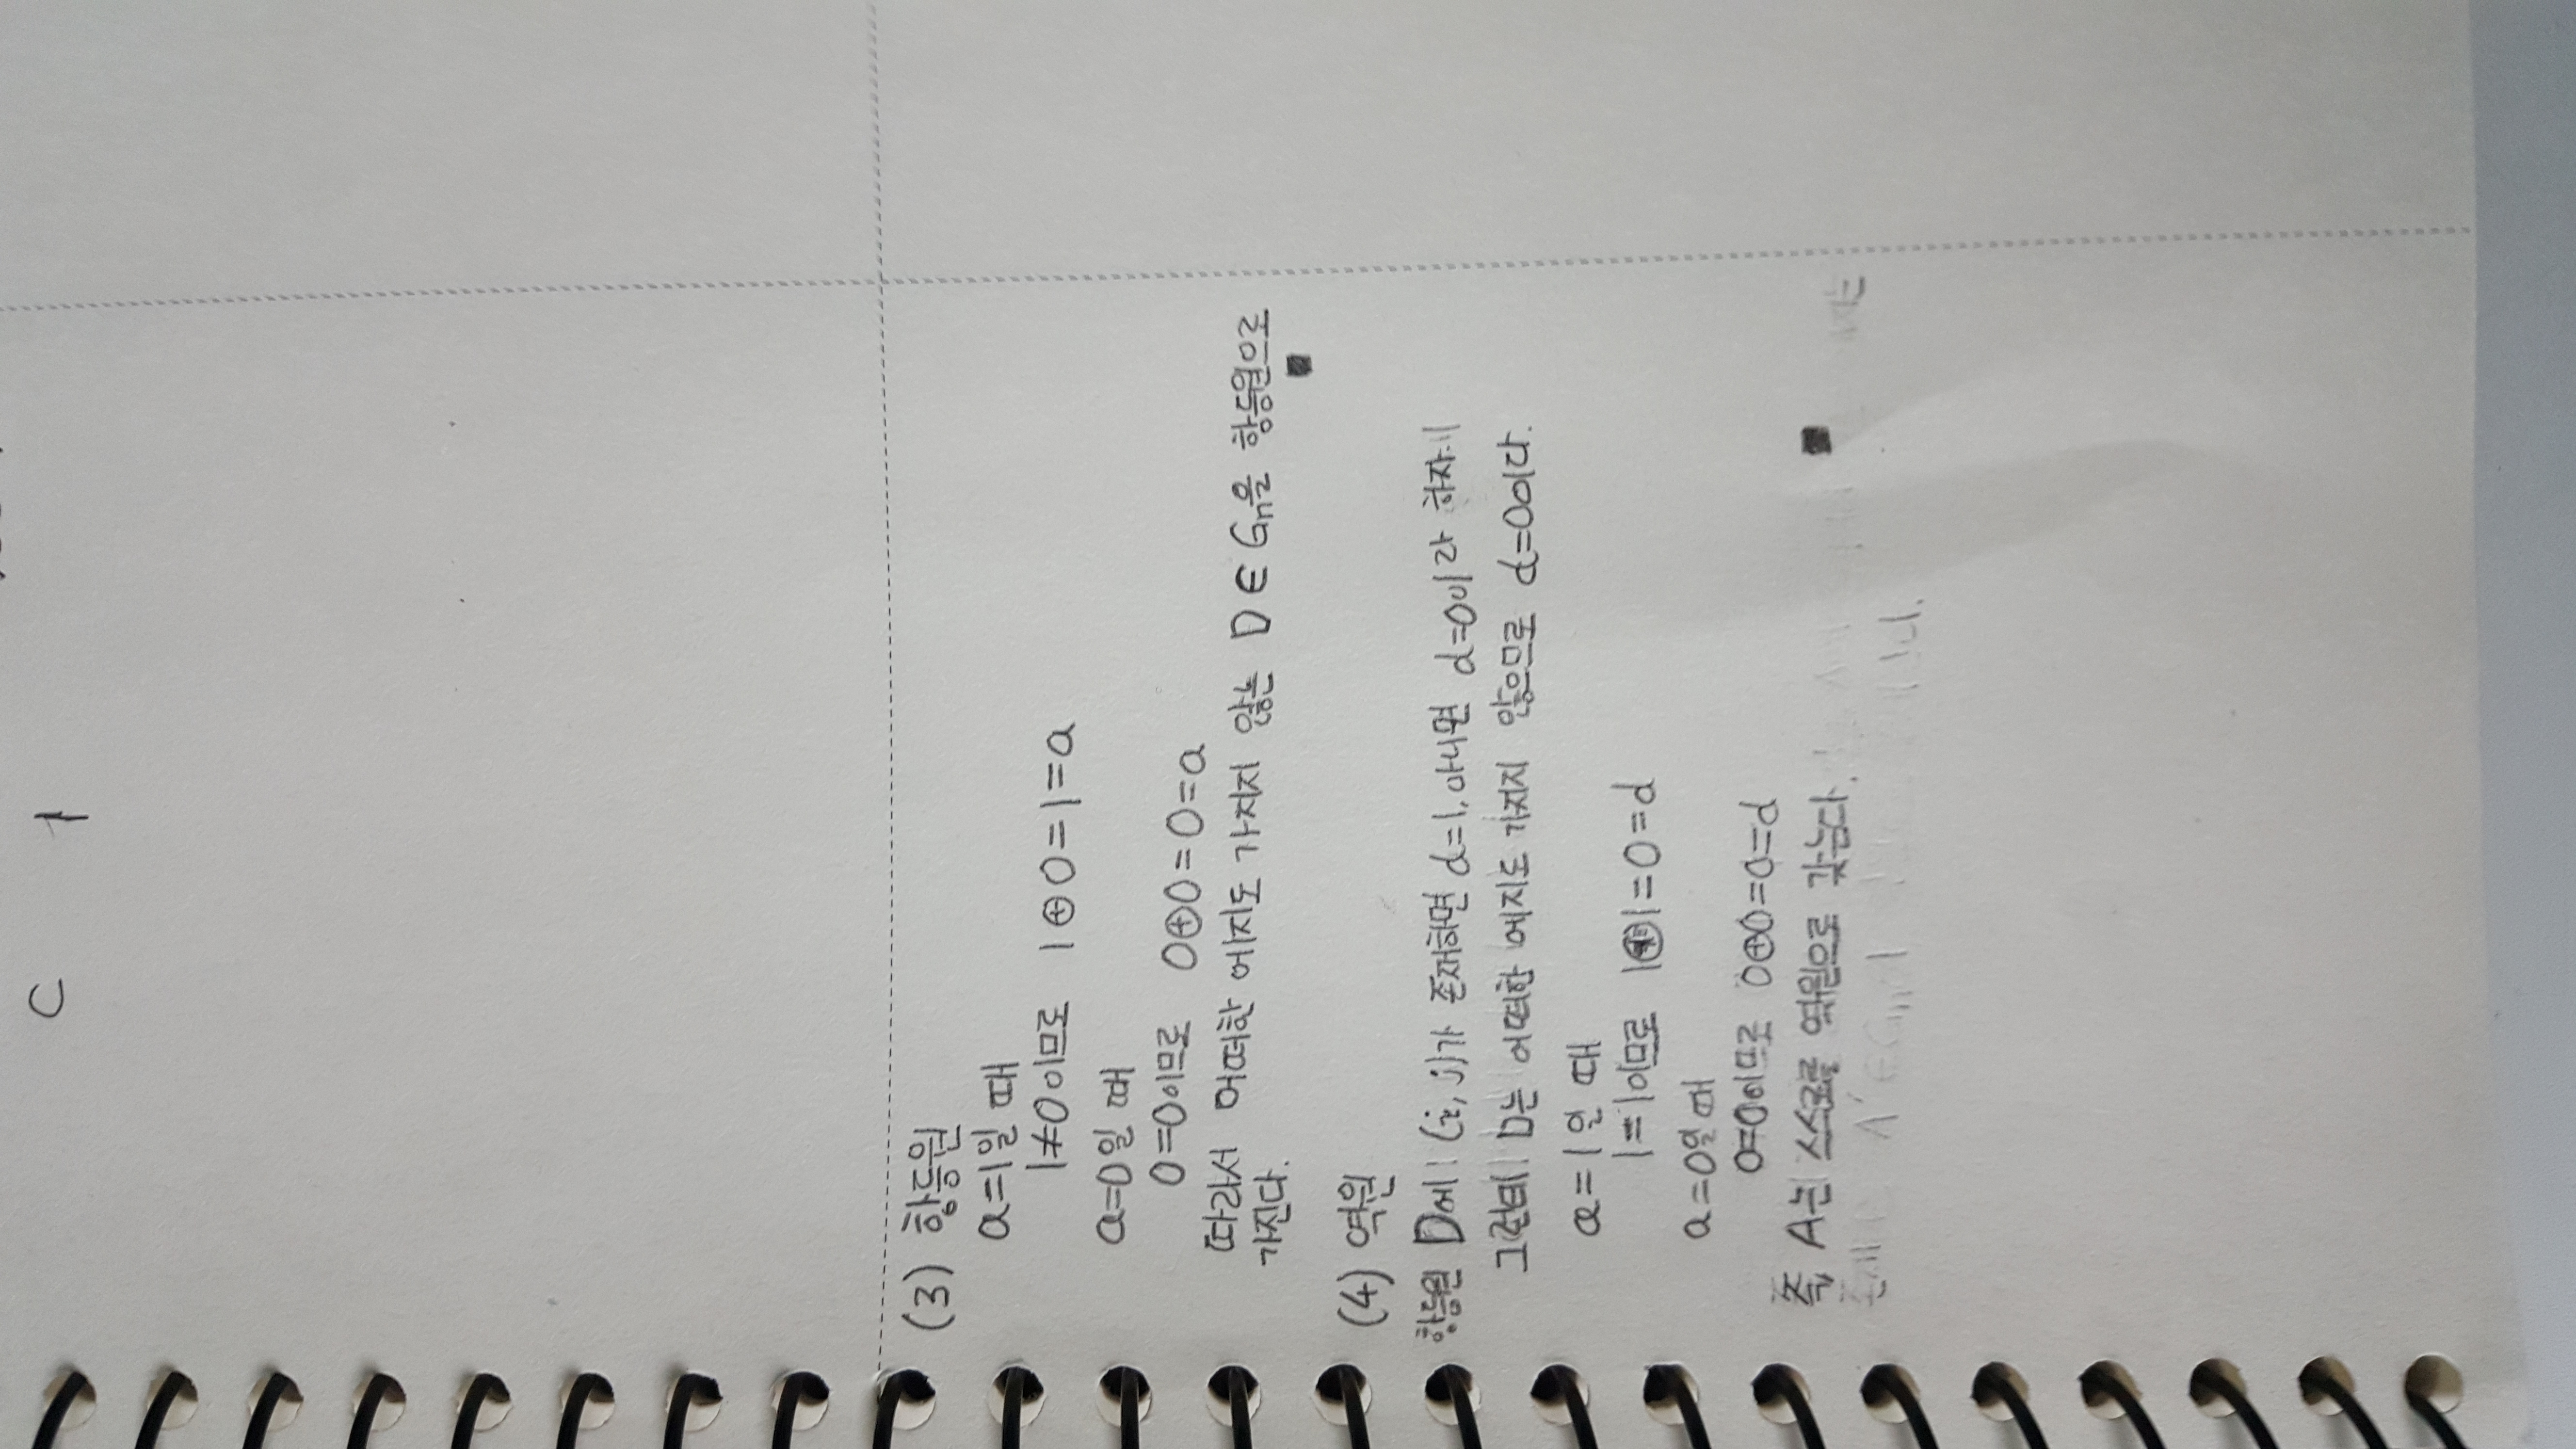 C 1
(3) 항등원
a=1일 때
1≠0이므로 1⊕0=1=a
a=0일 때
0=0이므로 0⊕0=0=a
따라서 어떠한 에지도 가지지 않는 D∈Gn을 항등원으로
가진다.
■
(4) 역원
항등원 D에 (i, j)가 존재하면 d=1, 아니면 d=0이라 하자.
그런데 D는 어떠한 에지도 가지지 않으므로 d=0이다.
a=1일 때
1=1이므로 1⊕1=0=d
a=0일 때
0=0이므로 0⊕0=0=d
즉, A는 스스로를 역원으로 갖는다. ■
A'∈Gn